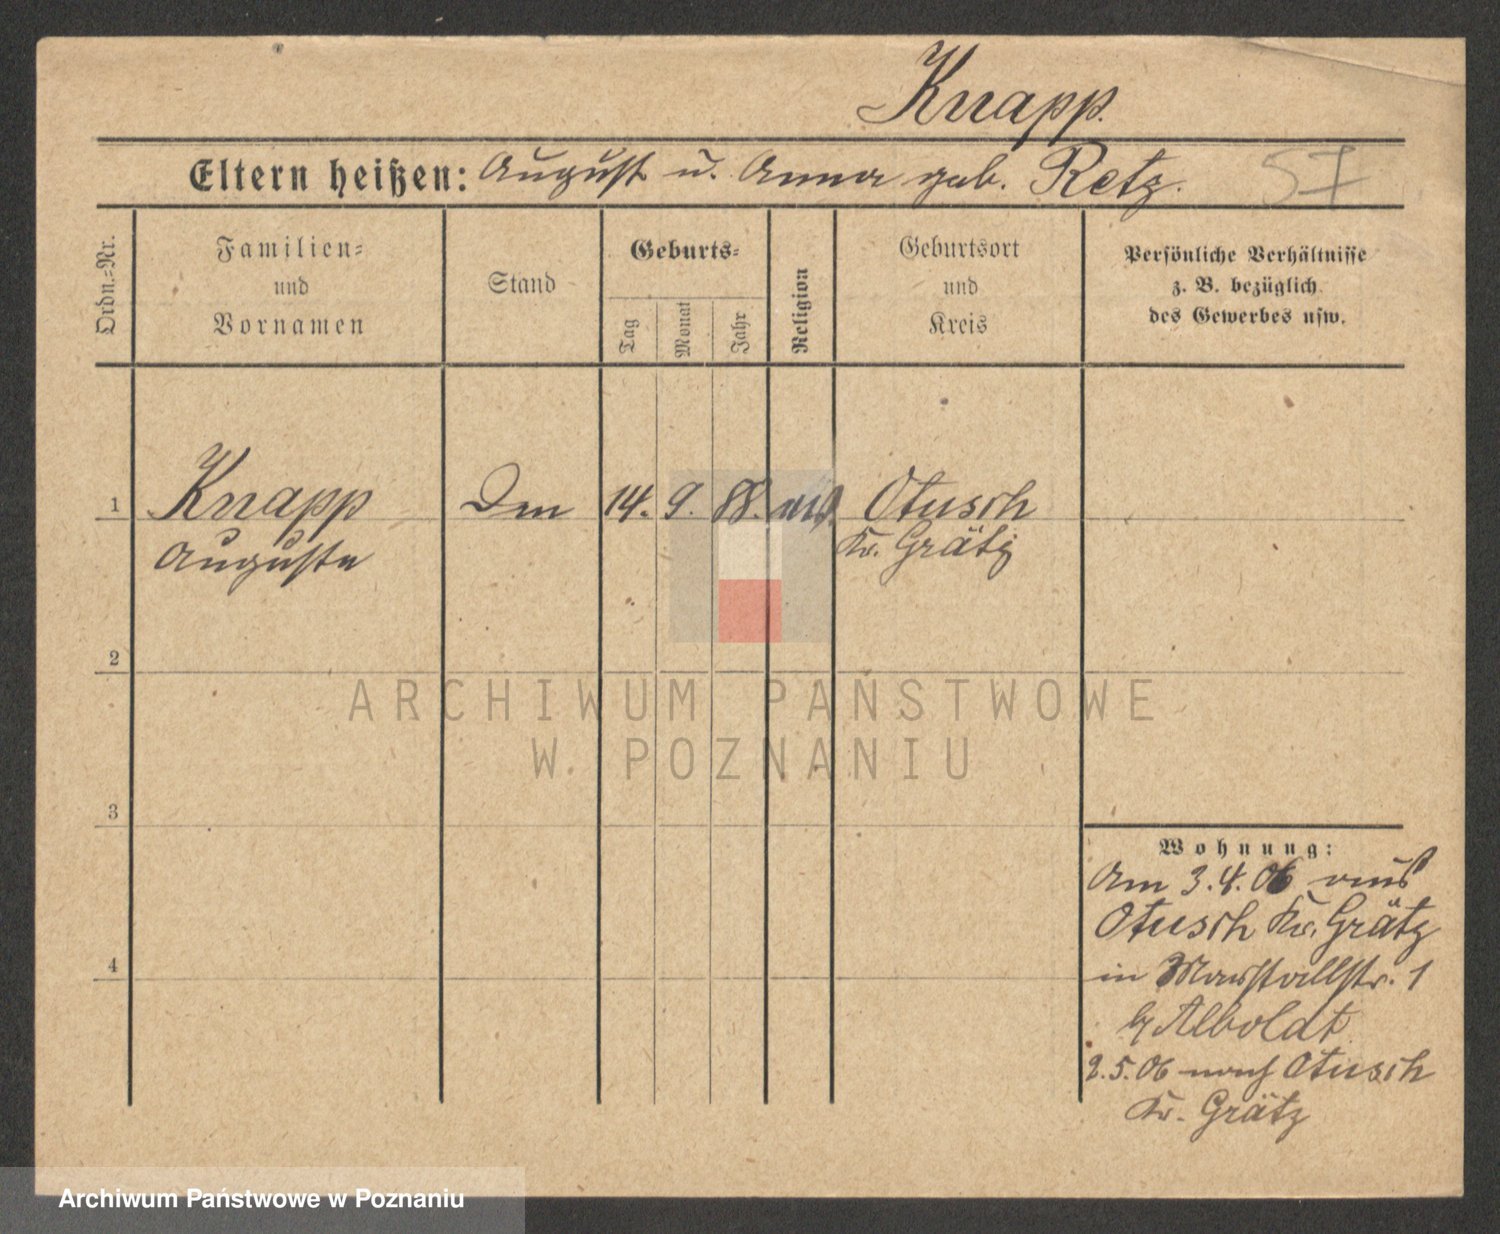 Knapp.
Eltern heißen: August u. Anna geb. Retz.
Ordn.=Nr.
Familien=
und
Vornamen
Stand
Geburts=
Tag
Monat
Jahr
Religion
Geburtsort
und
Kreis
Persönliche Verhältnisse
z. B. bezüglich
des Gewerbes usw.
1 Knapp 14. 9. 88. Otusch
Auguste Kr. Grätz
2
3
4
Wohnung:
Am 3.4.06 aus
Otusch Kr. Grätz
in Marstallstr. 1
b/ Alboldt
2.5.06 nach Otusch
Kr. Grätz
ARCHIWUM PAŃSTWOWE
W POZNANIU
Archiwum Państwowe w Poznaniu